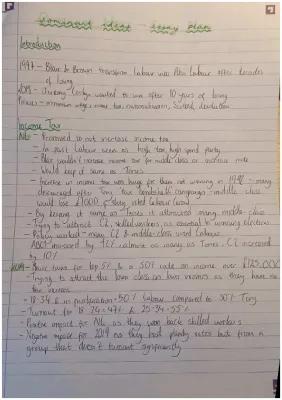 Dominant ideas essay plan
Introduction
1997 - Blair & Brown transform Labour into New Labour after decades
of losing
2019 - Jeremy Corbyn wanted to win after 10 years of losing
Policies - minimum wage, income tax, nationalisation, Scotland devolution
Income Tax
NL - Promised to not increase income tax
- In past Labour seen as high tax, high spend party
- Blair wouldn't increase income tax for middle class or income rate
- Would keep it same as Tories
- Increase in income tax was huge for them not winning in 1992 - many
discouraged after Tory tax bombshell campaign - middle class
would lose £1000 if they voted Labour
- By keeping it same as Tories it attracted many middle class
- Trying to attract C2, skilled workers as essential to winning elections
- Policy worked - many C2 & middle class voted Labour
ABC1 increased by 12% almost as many as Tories. C2 increased
by 10%
2019 - Raise taxes for top 5% & a 50% rate on income over £125,000
- Trying to attract the lower class as low incomes as they have no
tax increase
- 18-34 & in particular - 50% Labour compared to 30% Tory
- Turnout for 18-24 - 47% & 25-34 - 55%
- Positive impact for NL as they won back skilled workers
- Negative impact for 2019 as they had plenty votes but from a
group that doesn't turnout significantly